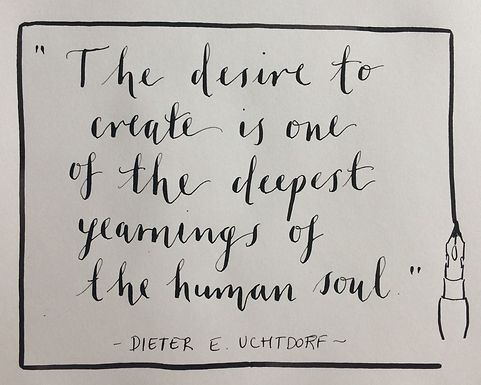 "The desire to
create is one
of the deepest
yearnings of
the human soul."
- DIETER E. UCHTDORF ~